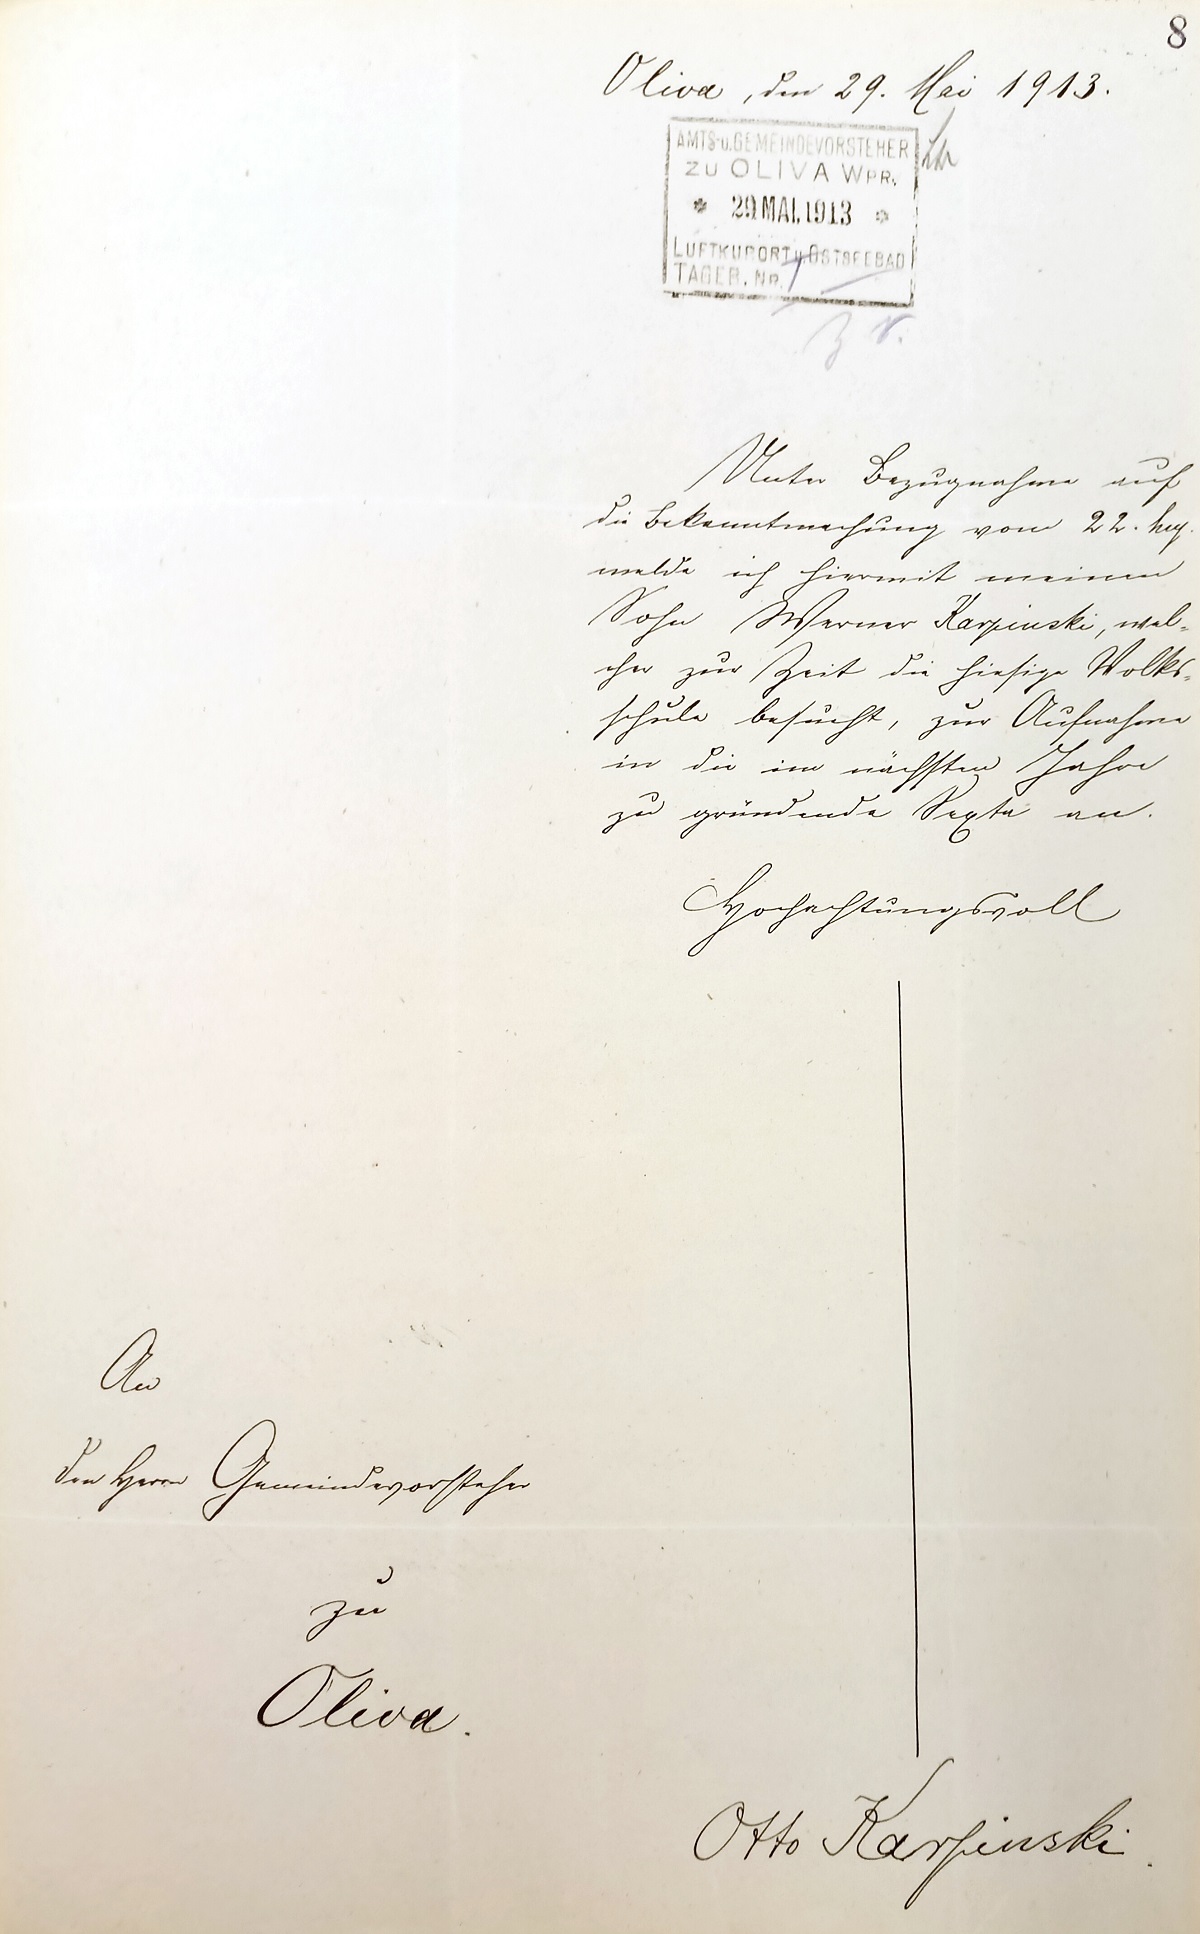 8
Oliva, den 29. Mai 1913.
AMTS-u. GEMEINDEVORSTEHER
ZU OLIVA WPR.
* 29. MAI. 1913 *
LUFTKURORT u. OSTSEEBAD
TAGEB. NR.
Unter Bezugnahme auf
die Bekanntmachung vom 22. huj.
melde ich hiermit meinen
Sohn Werner Karpinski, wel-
cher zur Zeit die hiesige Volks-
schule besucht, zur Aufnahme
in die im nächsten Jahre
zu gründende Sexta an.
Hochachtungsvoll
An
den Herrn Gemeindevorsteher
zu
Oliva.
Otto Karpinski.